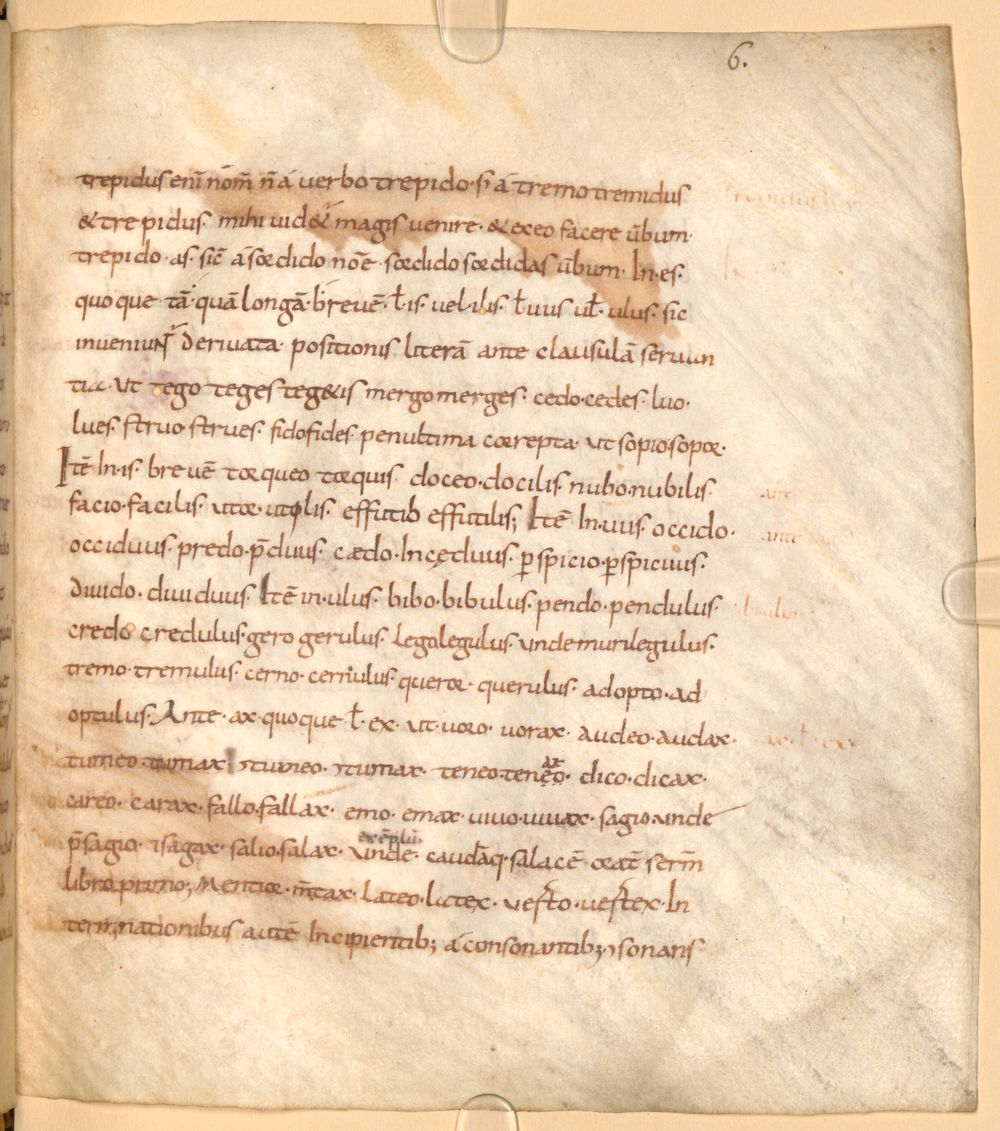 6.
trepidus eni nom̄ n̄ á verbo trepido· s; á tremo tremidus
& trepidus· mihi uidet&ur magis venire· & ex eo facere ūbum·
trepido· as· sic̄ á sordido noē· sordido sordidas ūbum· In· es·
quoque tā· quā longā· brevē· ł is· uel· ilis· ł· uus ul̄· ulus· sic
inueniunt̄ derivata positionis literā ante clausulā seruan
tia· Ut tego teges teg&is mergo merges· cedo· cedes· luo·
lues· struo· strues· fido fides· penultima correpta· ut sopio· sopor·
Itē In· is· brevē torqueo torquis· doceo· docilis· nubo· nubilis·
facio· facilis· utor· utilis· effutio effutilis; Itē In· uus· occido·
occiduus· predo· p̄duus· cædo· Incęduus· ꝑspicio· ꝑspicuus·
diuido· diuiduus· Itē in· ulus· bibo· bibulus· pendo· pendulus·
credo credulus· gero gerulus· Lego legulus· unde murilegulus·
tremo· tremulus· cerno· cernulus· queror· querulus· adopto· ad
optulus· Ante· ax· quoque ł· ex· ut· uoro· uorax· audeo· audax·
tumeo· tumax stupeo· stumax· teneo· tenax· dico· dicax·
careo· carax· fallo· fallax· emo· emax uiuo· uiuax· sagio· unde
p̄sagio· sagax· salio· salax· unde· caudāq· salacē· oratē serm̄
exēplū·
libro primo; Mentior· m̄tax· Lateo· latex· uesto· uestex· In
terminationibus autē Incipientib; á consonantib; sonans